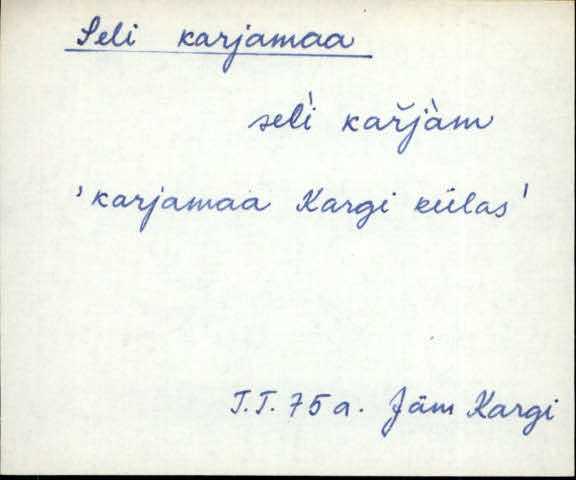 Seli karjamaa
seli̇̀ kař̌jàm
'karjamaa Kargi külas'
T.T. 75 a. Jäm Kargi